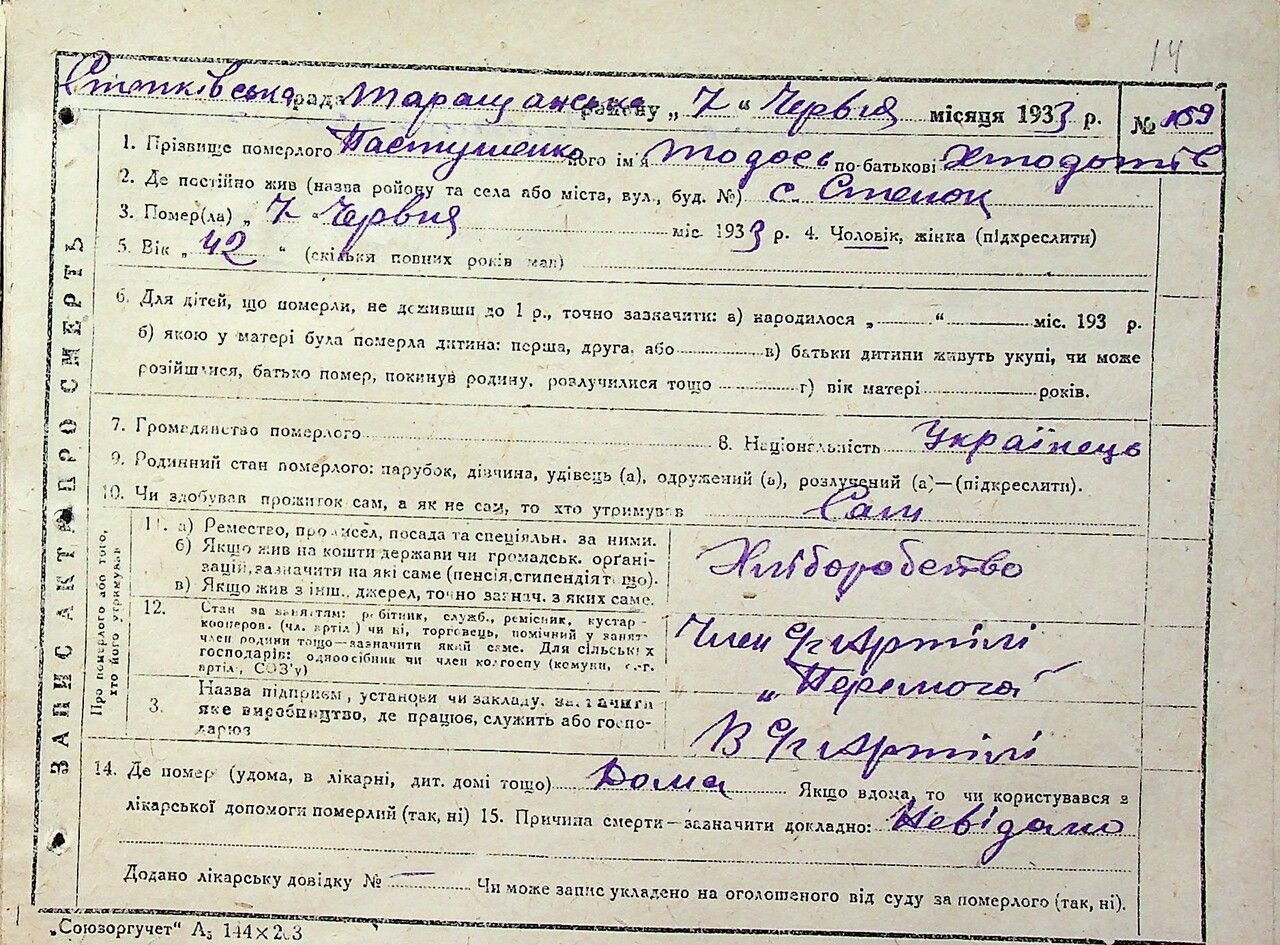 14
Степківська рада Таращанська району „ 7 “ Червня місяця 1933 р. № 159
1. Прізвище померлого Пастушенко його ім'я Тодось по-батькові
2. Де постійно жив (назва району та села або міста, вул., буд. №) с. Степок
3. Помер(ла) „ 7 “ Червня міс. 1933 р. 4. Чоловік, жінка (підхреслити)
5. Вік „ 42 “ (скільки повних років мав)
6. Для дітей, що померли, не доживши до 1 р., точно зазначити: а) народилося „ “ міс. 193 р.
б) якою у матері була померла дитина: перша, друга, або в) батьки дитини живуть укупі, чи може
розійшлися, батько помер, покинув родину, розлучилися тощо г) вік матері років.
7. Громадянство померлого 8. Національність Українець
9. Родинний стан померлого: парубок, дівчина, удівець (а), одружений (а), розлучений (а)—(підкреслити).
10. Чи здобував прожиток сам, а як не сам, то хто утримував Сам
ЗАПИС АКТА ПРО СМЕРТЬ
Про померлого або того,
хто його утримував
11. а) Ремество, промисел, посада та спеціяльн. за ними.
б) Якщо жив на кошти держави чи громадськ. орґані-
зацій, зазначити на які саме (пенсія, стипендія тощо).
в) Якщо жив з інш. джерел, точно зазнач. з яких саме.
Хліборобство
12. Стан за заняттям: робітник, служб., ремісник, кустар-
кооперов. (чл. артіл.) чи ні, торговець, помічний у занят.
член родини тощо—зазначити який саме. Для сільських
господарів: одноосібник чи член колгоспу (комуни, с.-г.
артілі, СОЗ'у)
Член С/г Артілі
„Перемога“
3. Назва підприєм., установи чи закладу, зазначити
яке виробництво, де працює, служить або госпо-
дарює
В С/г Артілі
14. Де помер (удома, в лікарні, дит. домі тощо) Дома Якщо вдома, то чи користувався з
лікарської допомоги померлий (так, ні) 15. Причина смерти—зазначити докладно: Невідомо
Додано лікарську довідку № — Чи може запис укладено на оголошеного від суду за померлого (так, ні).
„Союзоргучет“ А5 144×203